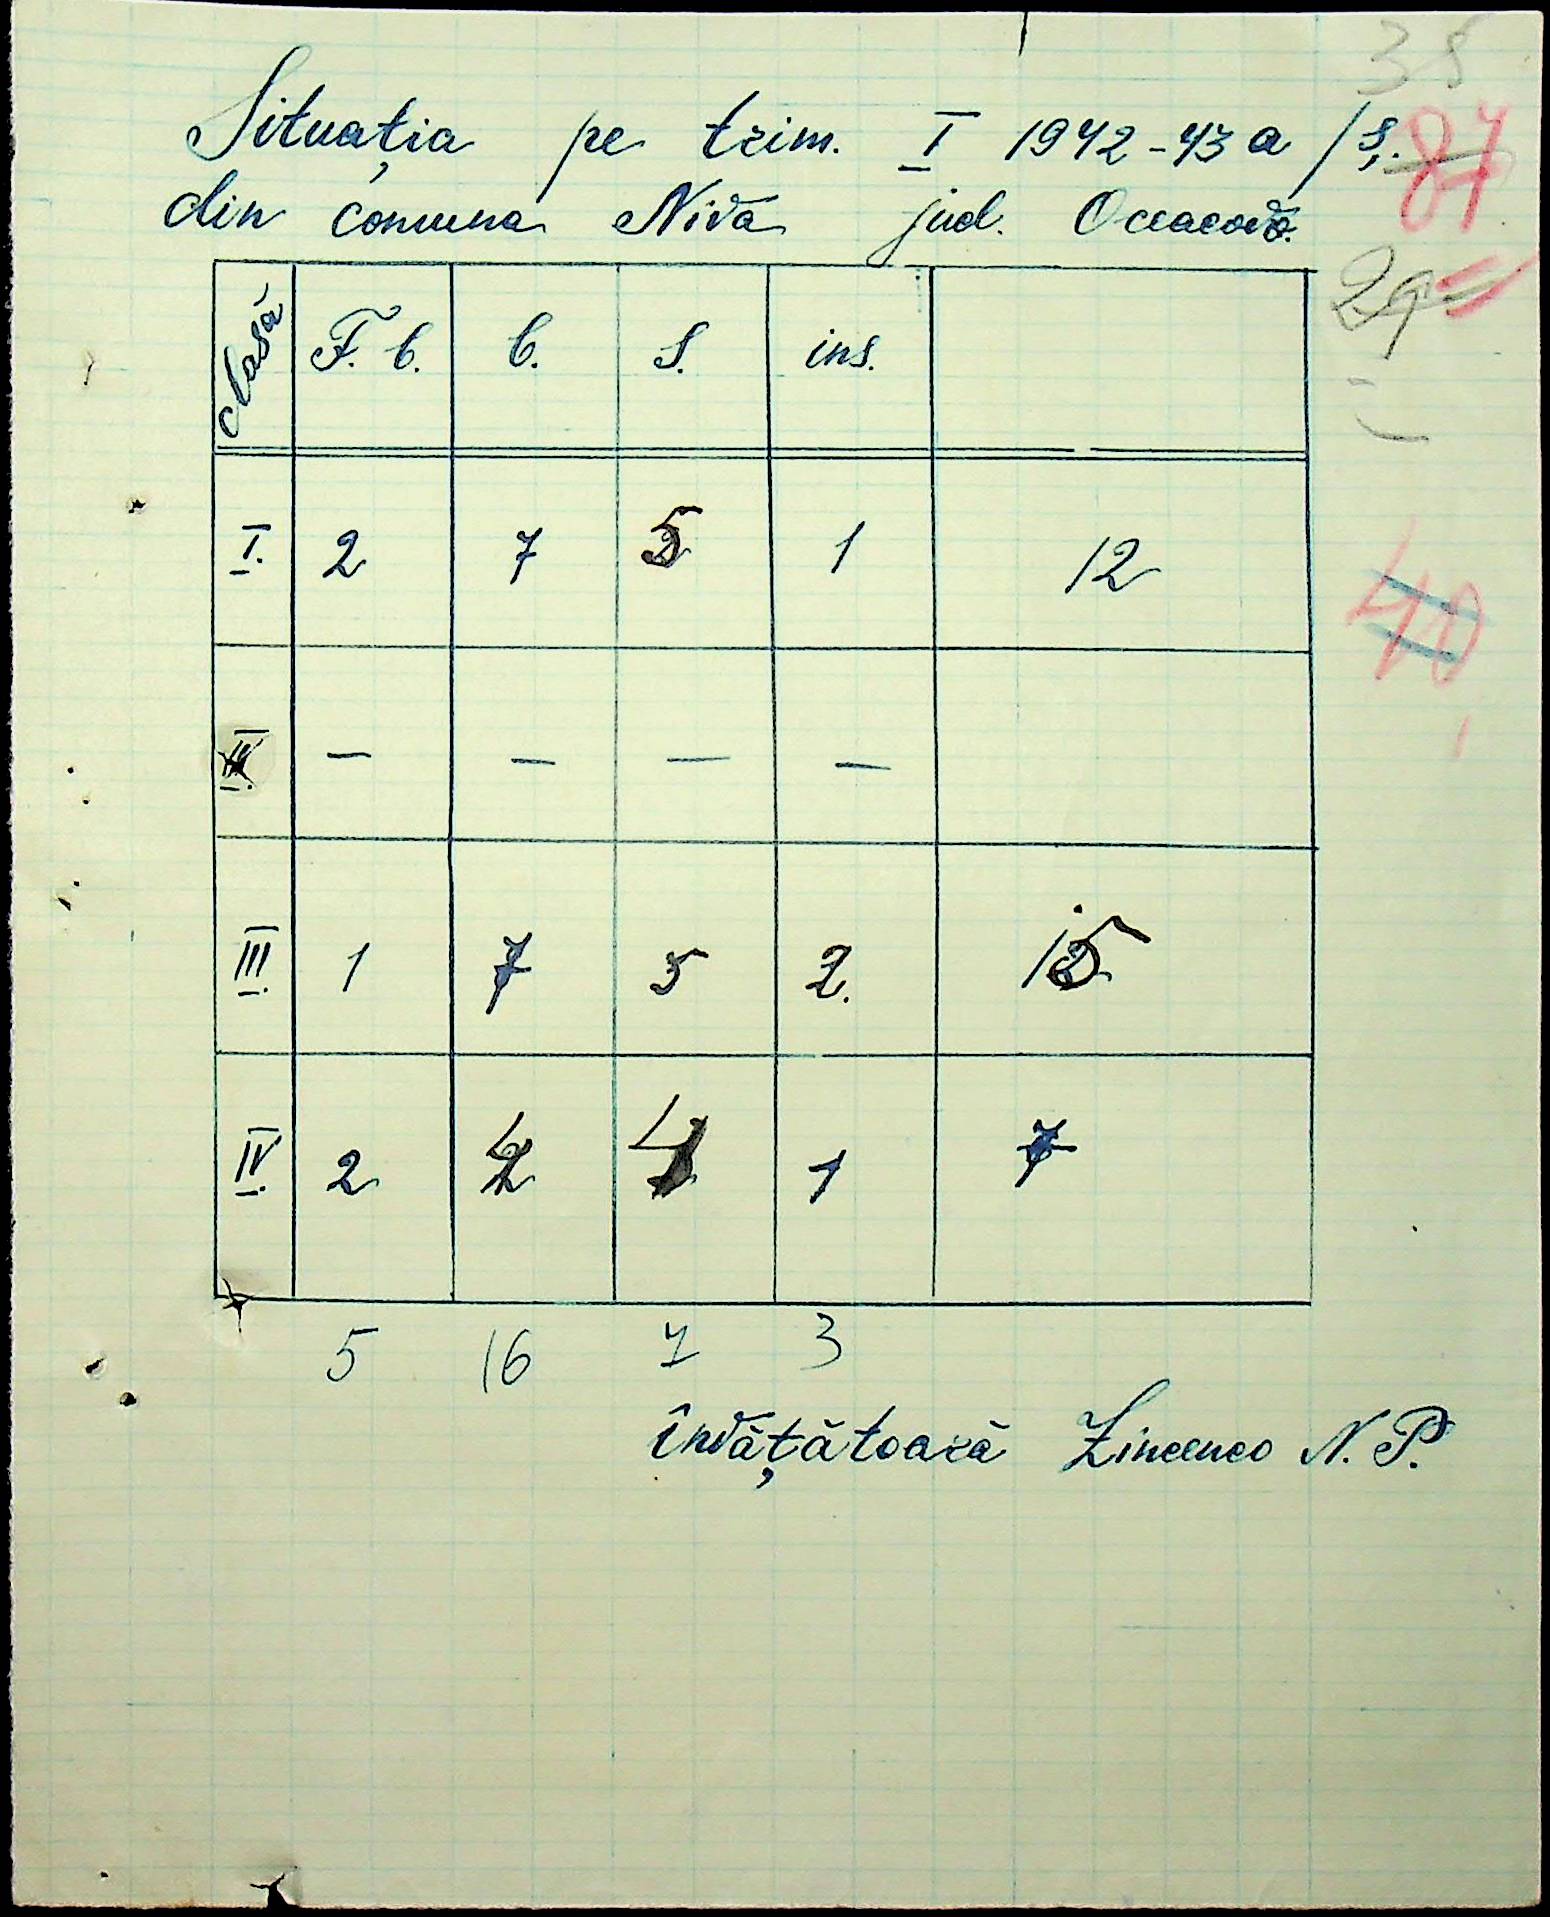 38
Situația pe trim. I 1942-43 a/ș.
87
din comuna Niva jud. Oceacovo.
29
clasă F.b. b. S. ins.
I. 2 7 5 1 12
40
II. — — — —
III. 1 7 5 2. 15
IV. 2 4 1 7
5 16 7 3
învățătoară Zincenco N.P.